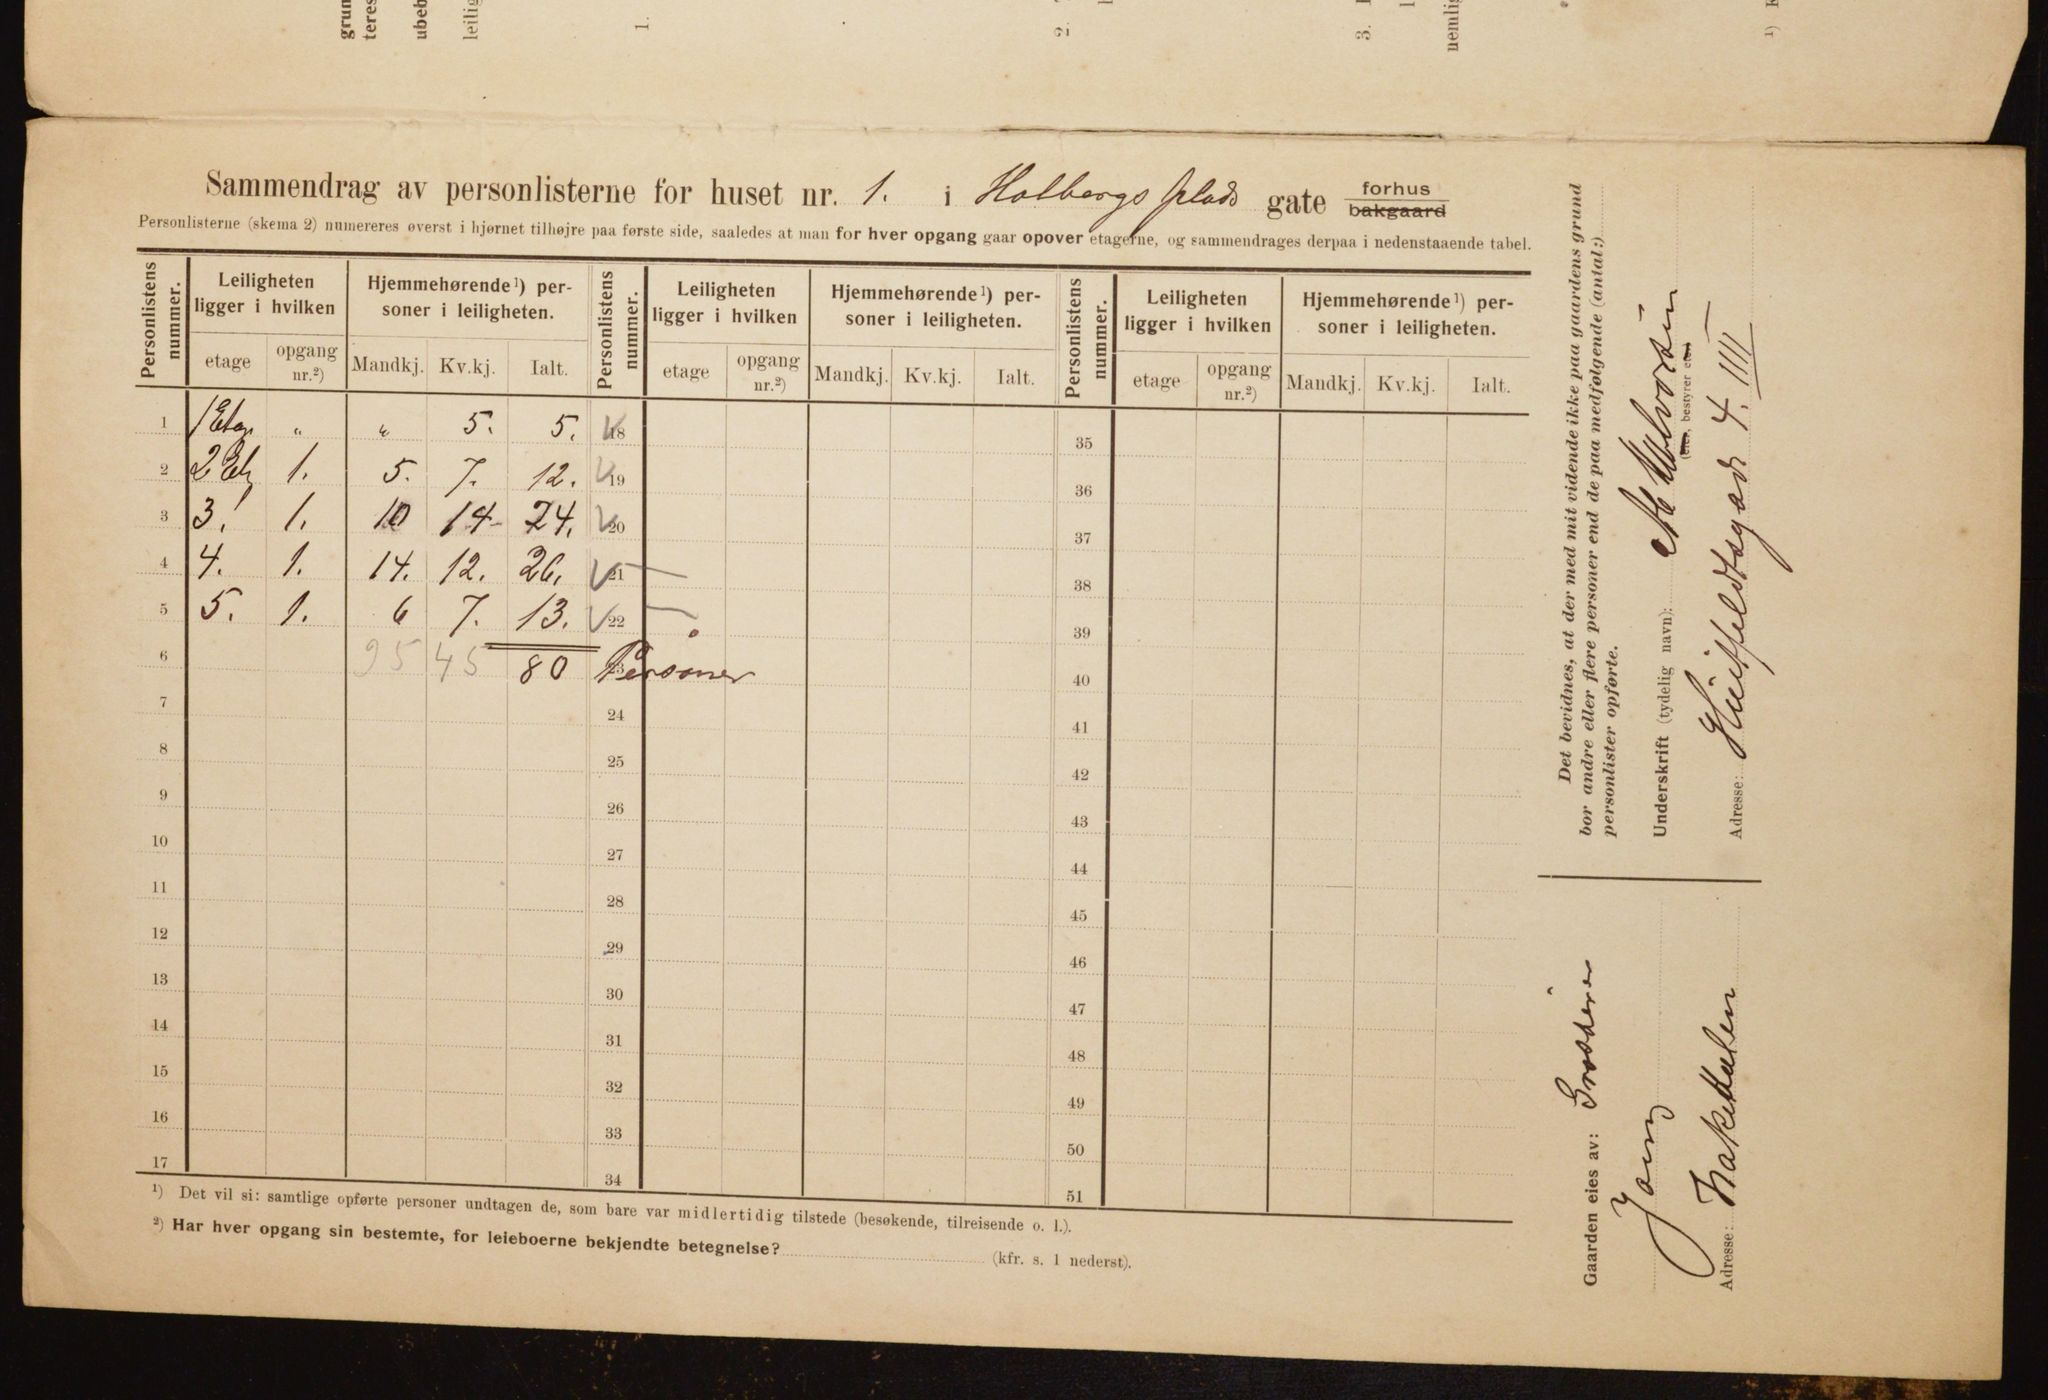 grun
teres
ubeb
leilig
1.
2.
3.
nemlig
1)
Sammendrag av personlisterne for huset nr. 1. i Holbergs plads gate forhus bakgaard
Personlisterne (skema 2) numereres øverst i hjørnet tilhøjre paa første side, saaledes at man for hver opgang gaar opover etagerne, og sammendrages derpaa i nedenstaaende tabel.
Personlistens nummer. Leiligheten ligger i hvilken Hjemmehørende¹) personer i leiligheten. Personlistens nummer. Leiligheten ligger i hvilken Hjemmehørende¹) personer i leiligheten. Personlistens nummer. Leiligheten ligger i hvilken Hjemmehørende¹) personer i leiligheten.
etage opgang nr.²) Mandkj. Kv.kj. Ialt. etage opgang nr.²) Mandkj. Kv.kj. Ialt. etage opgang nr.²) Mandkj. Kv.kj. Ialt.
1 1 Etag. „ „ 5. 5. 18 35
2 2 Etg 1. 5. 7. 12. 19 36
3 3. 1. 10 14 24. 20 37
4 4. 1. 14. 12. 26. 21 38
5 5. 1. 6 7. 13. 22 39
6 35 45 80 Personer 40
7 24 41
8 25 42
9 26 43
10 27 44
11 28 45
12 29 46
13 30 47
14 31 48
15 32 49
16 33 50
17 34 51
¹) Det vil si: samtlige opførte personer undtagen de, som bare var midlertidig tilstede (besøkende, tilreisende o. l.).
²) Har hver opgang sin bestemte, for leieboerne bekjendte betegnelse? (kfr. s. 1 nederst).
Det bevidnes, at der med mit vidende ikke paa gaardens grund
bor andre eller flere personer end de paa medfølgende (antal:)
personlister opførte.
Underskrift (tydelig navn): Halvorsen
(eier, bestyrer eller
Adresse: Huitfeldtsgade 4. IIII
Gaarden eies av: Grosserer
Adresse: Hakedalen